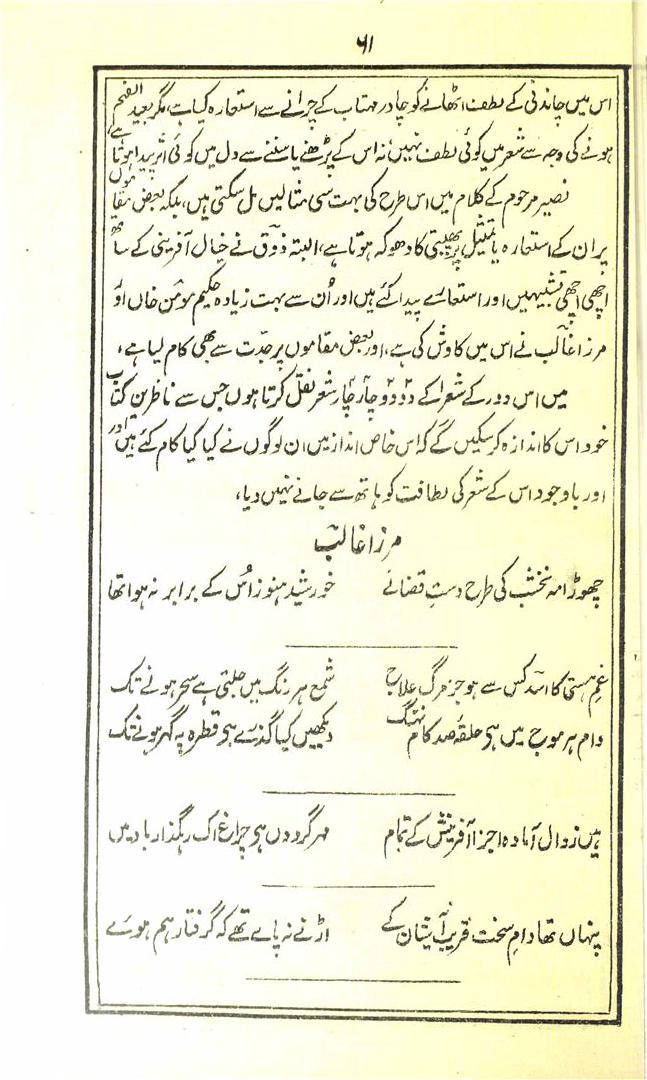 ۶۱
اس میں چاندنی کے لطف اٹھانے کو چادر مہتاب کے چرانے سے استعارہ کیا ہے، مگر بعید الفہم
ہونے کی وجہ سے شعر میں کوئی لطف نہیں، نہ اس کے پڑھنے یا سننے سے دل میں کوئی اثر پیدا ہوتا ہے،
نصیر مرحوم کے کلام میں اس طرح کی بہت سی مثالیں مل سکتی ہیں، بلکہ بعض مقاموں
پر ان کے استعارہ یا تمثیل پر پھبتی کا دھوکہ ہوتا ہے، البتہ ذوق نے خیال آفرینی کے ساتھ
اچھی اچھی تشبیہیں اور استعارے پیدا کئے ہیں اور اُن سے بہت زیادہ حکیم مومن خاں اور
مرزا غالب نے اس میں کاوش کی ہے، اور بعض مقاموں پر جدت سے بھی کام لیا ہے،
میں اس دور کے شعرا کے دو دو چار چار شعر نقل کرتا ہوں جس سے ناظرین کتاب
خود اس کا اندازہ کر سکیں گے کہ اس خاص انداز میں ان لوگوں نے کیا کیا کام کئے ہیں اور
اور باوجود اس کے شعر کی لطافت کو ہاتھ سے جانے نہیں دیا،
مرزا غالب
چھوڑا مہ نخشب کی طرح دستِ قضا نے خورشید ہنوز اُس کے برابر نہ ہوا تھا
غمِ ہستی کا اسد کس سے ہو جز مرگ علاج شمع ہر رنگ میں جلتی ہے سحر ہونے تک
دام ہر موج میں ہی حلقۂ صد کام نہنگ دیکھیں کیا گذرے ہی قطرہ پہ گہر ہونے تک
ہیں زوال آمادہ اجزا آفرینش کے تمام مہر گردوں ہی چراغ اک رہگذار باد میں
پنہاں تھا دامِ سخت قریب آشیان کے اڑنے نہ پاے تھے کہ گرفتار ہم ہوے